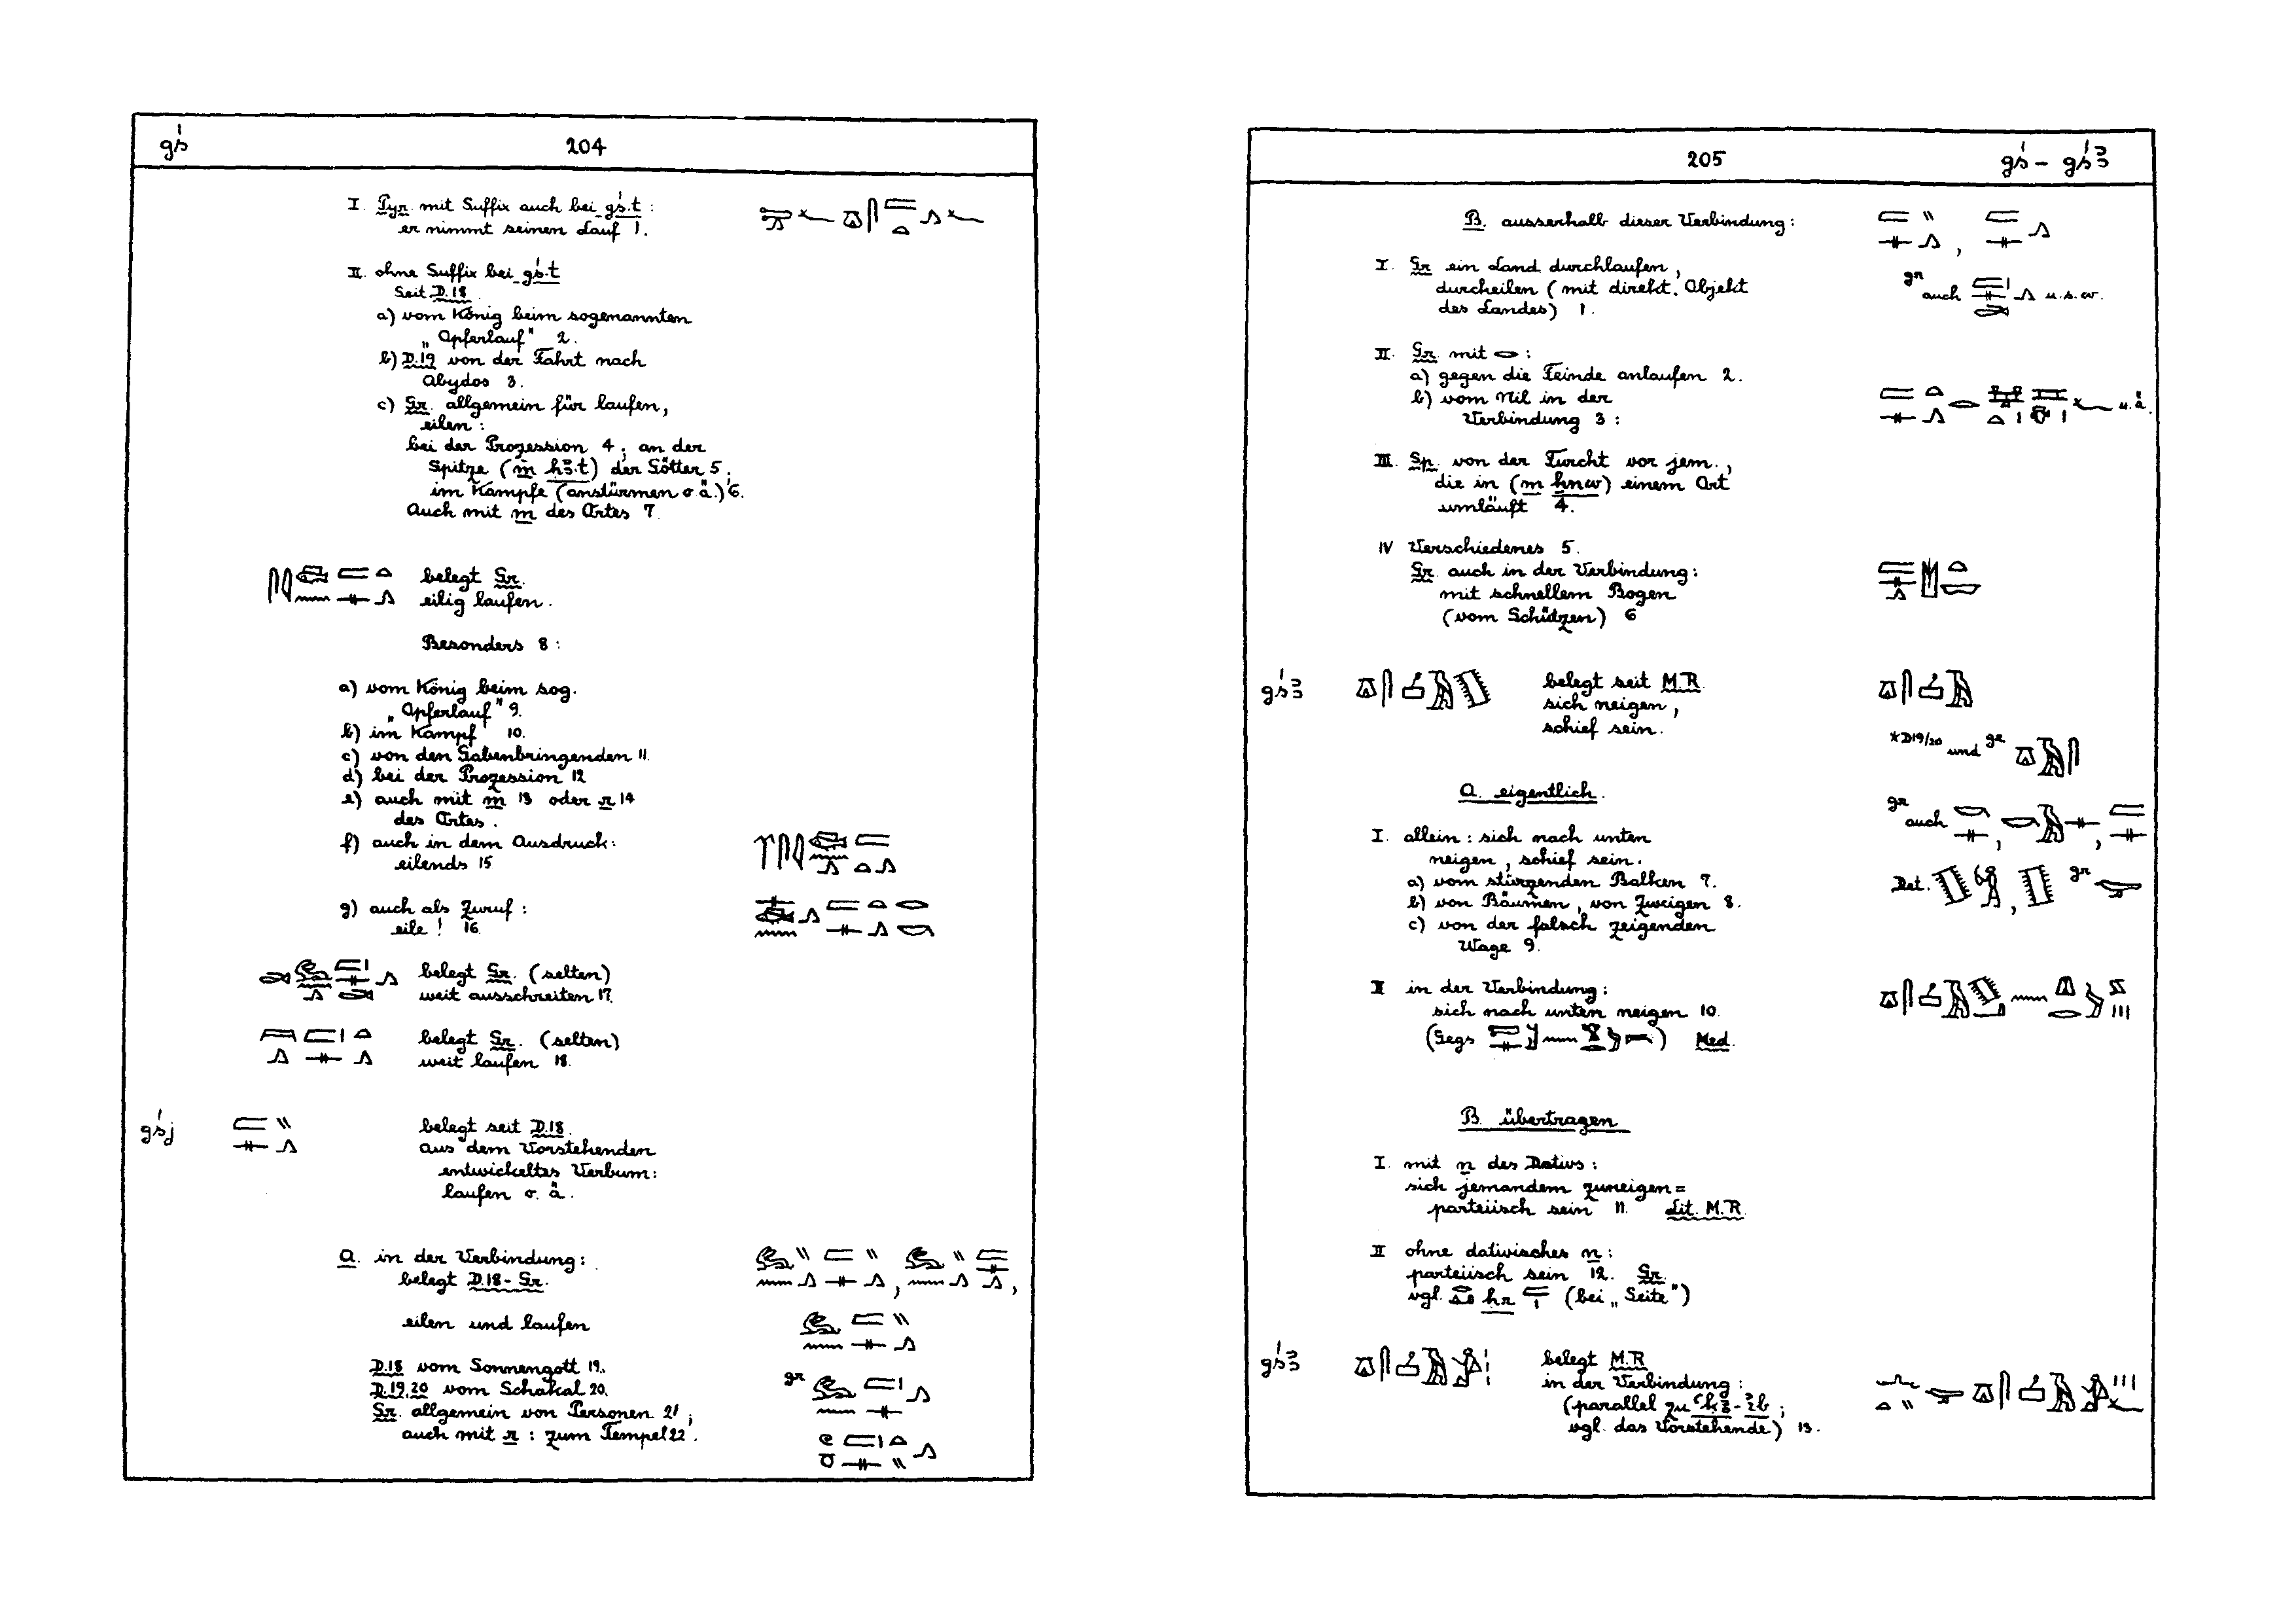 gś 204
I. Pyr. mit Suffix auch bei gś.t :
er nimmt seinen Lauf 1.
II. ohne Suffix bei gś.t
Seit D.18
a) vom König beim sogenannten
„Opferlauf" 2.
b) D.19 von der Fahrt nach
Abydos 3.
c) Gr. allgemein für laufen,
eilen :
bei der Prozession 4; an der
Spitze (m ḥꜣ.t) der Götter 5;
im Kampfe (anstürmen o.ä.) 6.
Auch mit m des Ortes 7.
belegt Gr.
eilig laufen.
Besonders 8 :
a) vom König beim sog.
„Opferlauf" 9.
b) im Kampf 10.
c) von den Gabenbringenden 11.
d) bei der Prozession 12
e) auch mit m 13 oder r 14
des Ortes.
f) auch in dem Ausdruck:
eilends 15
g) auch als Zuruf :
eile ! 16.
belegt Gr. (selten)
weit ausschreiten 17.
belegt Gr. (selten)
weit laufen 18.
gśj belegt seit D.18.
aus dem Vorstehenden
entwickeltes Verbum:
laufen o. ä.
A. in der Verbindung:
belegt D.18 - Gr.
eilen und laufen
D.18 vom Sonnengott 19.
D.19.20 vom Schakal 20.
gr
Gr. allgemein von Personen 21 ;
auch mit r : zum Tempel 22.
205 gś - gśꜣ
B. ausserhalb dieser Verbindung:
I. Gr ein Land durchlaufen,
durcheilen (mit direkt. Objekt
des Landes) 1.
gr auch u.s.w.
II. Gr. mit :
a) gegen die Feinde anlaufen 2.
b) vom Nil in der
Verbindung 3 : u.ä.
III. Sp. von der Furcht vor jem.,
die in (m ẖnw) einem Ort
umläuft 4.
IV Verschiedenes 5.
Gr. auch in der Verbindung:
mit schnellem Bogen
(vom Schützen) 6
gśꜣ belegt seit M.R
sich neigen,
schief sein.
*D19/20 und gr
A. eigentlich.
gr auch
I. allein : sich nach unten
neigen, schief sein.
a) vom stürzenden Balken 7.
b) von Bäumen, von Zweigen 8.
c) von der falsch zeigenden
Wage 9.
Det. gr
II in der Verbindung:
sich nach unten neigen 10.
(Gegs ) Med.
B. übertragen
I. mit n des Dativs :
sich jemandem zuneigen =
parteiisch sein 11. Lit. M.R
II ohne dativisches n :
parteiisch sein 12. Gr.
vgl. hr (bei „Seite")
gśꜣ belegt M.R
in der Verbindung :
(parallel zu ꜥḳꜣ-ib ;
vgl. das Vorstehende) 13.